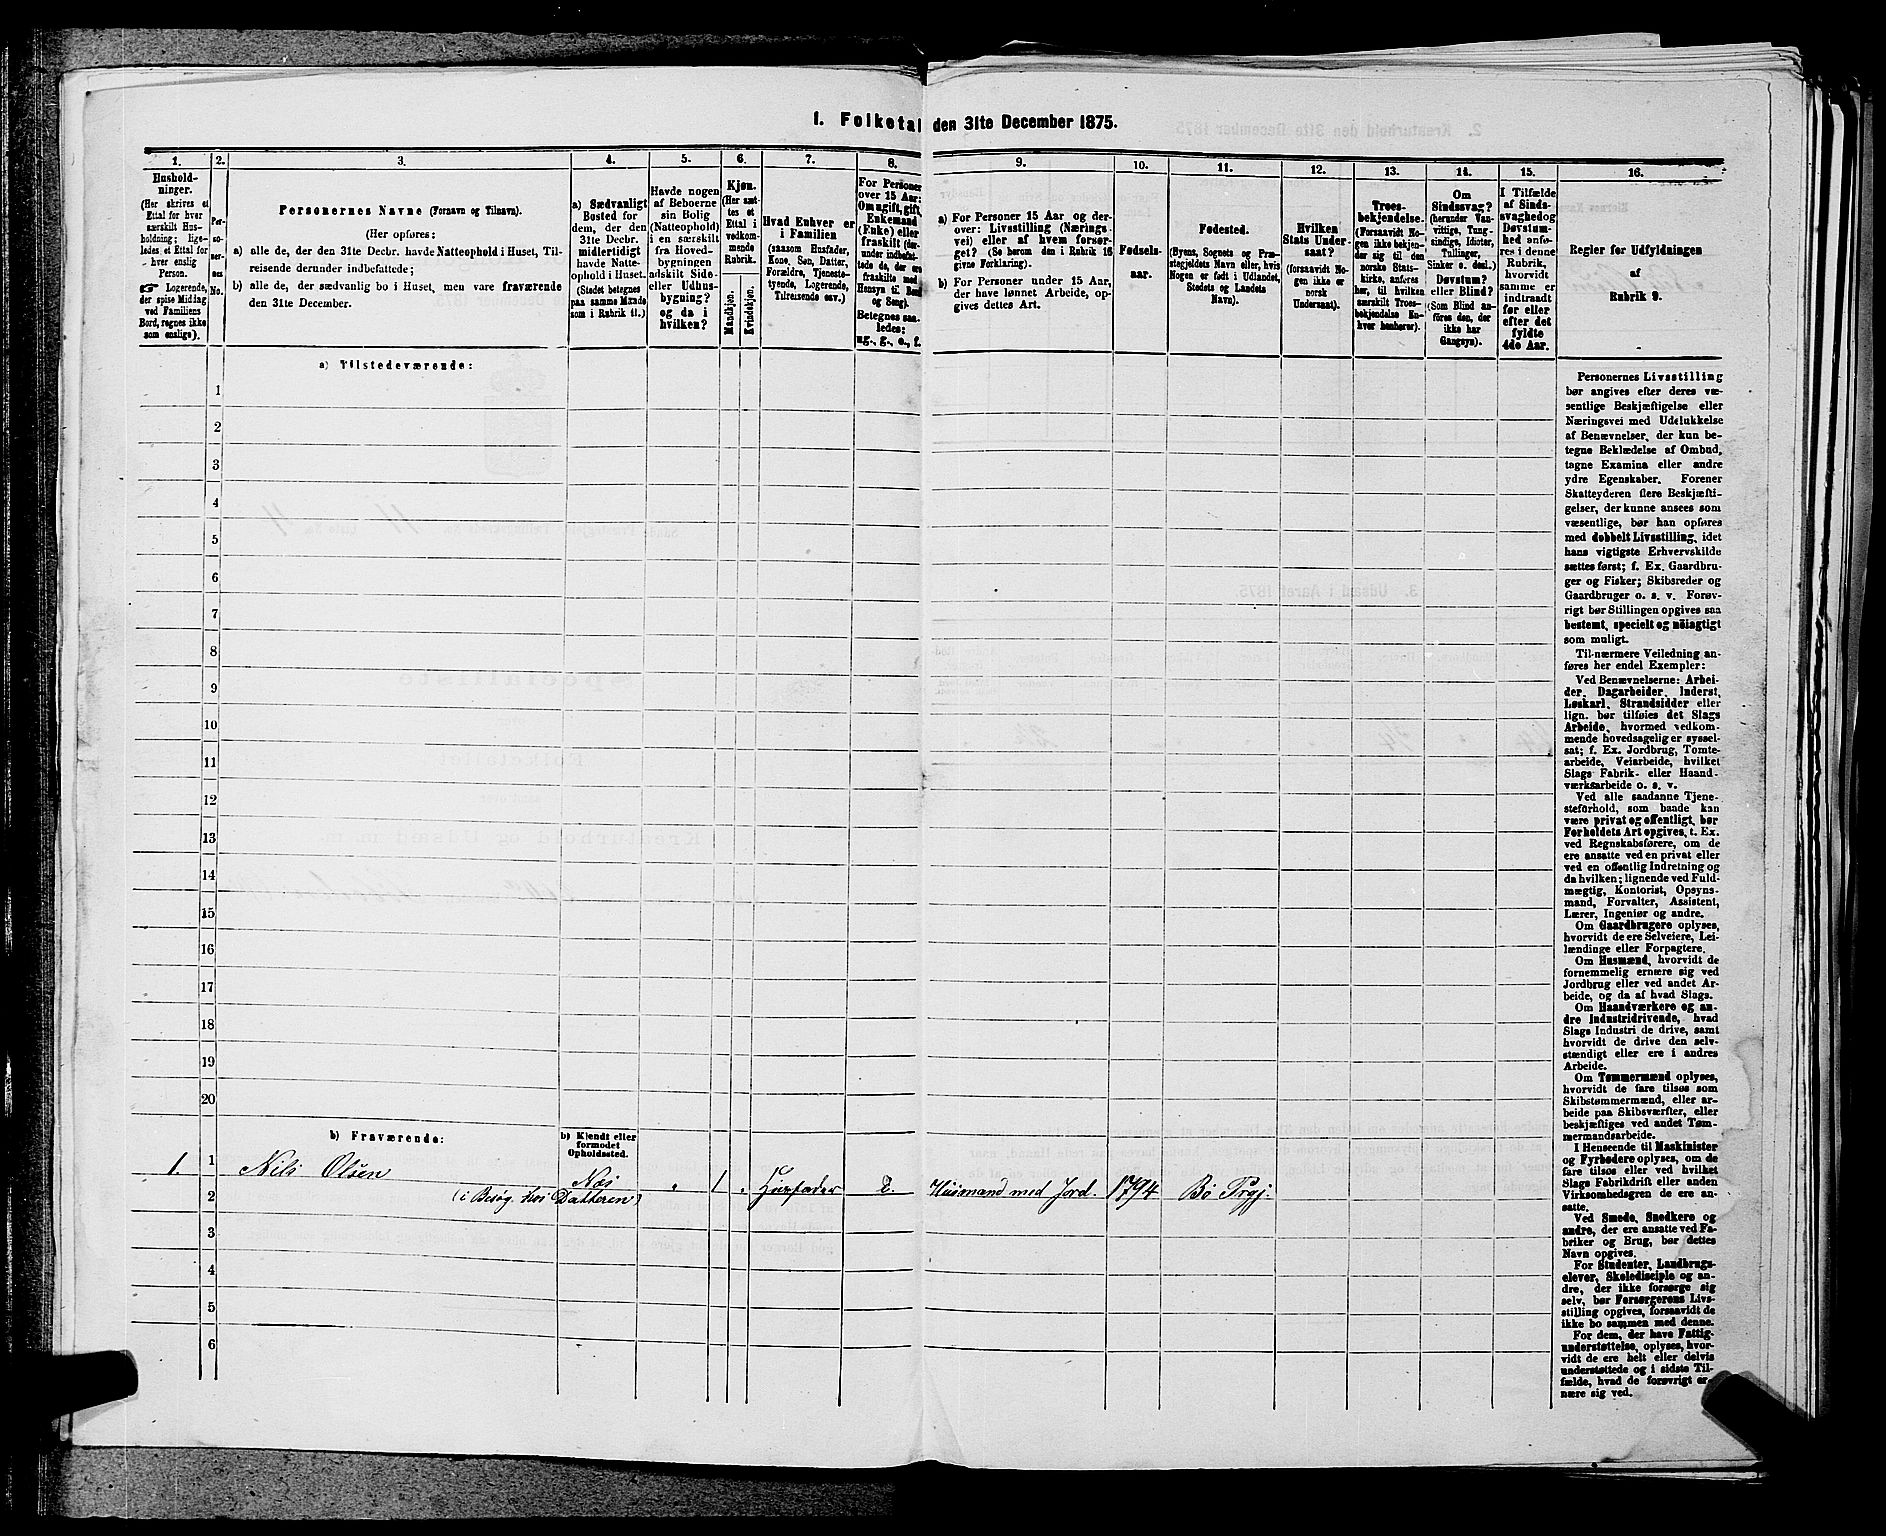 1. Folketal den 31te December 1875.
1. 2. 3. 4. 5. 6. 7. 8. 9. 10. 11. 12. 13. 14. 15. 16.
Hushold-
ninger.
(Her skrives et
Ettal for hver
særskilt Hus-
holdning; lige-
ledes et Ettal for
hver enslig
Person.
☞ Logerende,
der spise Middag
ved Familiens
Bord, regnes ikke
som enslige).
Per-
so-
ner-
nes
No.
Personernes Navne (Fornavn og Tilnavn).
(Her opføres:
a) alle de, der den 31te Decbr. havde Natteophold i Huset, Til-
reisende derunder indbefattede;
b) alle de, der sædvanlig bo i Huset, men vare fraværende
den 31te December.
a) Sædvanligt
Bosted for
dem, der den
31te Decbr.
midlertidigt
havde Natte-
ophold i Huset.
(Stedet betegnes
paa samme Maade
som i Rubrik 11.)
Havde nogen
af Beboerne
sin Bolig
(Natteophold)
i en særskilt
fra Hoved-
bygningen
adskilt Side-
eller Udhus-
bygning?
og da i
hvilken?
Kjøn.
(Her sæt-
tes et
Ettal i
vedkom-
mende
Rubrik.
Mandkjøn.
Kvindekjøn.
Hvad Enhver er
i Familien
(saasom Husfader,
Kone, Søn, Datter,
Forældre, Tjeneste-
tyende, Logerende,
Tilreisende osv.)
For Personer
over 15 Aar:
Om ugift, gift,
Enkemand
(Enke) eller
fraskilt (der-
under indbefat-
tede de, der ere
fraskilte med
Hensyn til Bord
og Seng).
Betegnes saa-
ledes:
ug., g., e., f.
a) For Personer 15 Aar og der-
over: Livsstilling (Nærings-
vei) eller af hvem forsør-
get? (Se herom den i Rubrik 16
givne Forklaring).
b) For Personer under 15 Aar,
der have lønnet Arbeide, op-
gives dettes Art.
Fødsels-
aar.
Fødested.
(Byens, Sognets og Præ-
stegjeldets Navn eller, hvis
Nogen er født i Udlandet,
Stedets og Landets
Navn).
Hvilken
Stats Under-
saat?
(forsaavidt No-
gen ikke er
norsk
Undersaat).
Troes-
bekjendelse.
(Forsaavidt No-
gen ikke bekjen-
der sig til den
norske Stats-
kirke, anføres
her, til hvilken
særskilt Troes-
bekjendelse En-
hver henhører).
Om
Sindssvag?
(herunder Van-
vittige, Tung-
sindige, Idioter,
Tullinger,
Sinker o. desl.)
Døvstum?
eller Blind?
(Som Blind an-
føres den, der
ikke har
Gangsyn).
I Tilfælde
af Sinds-
svaghed og
Døvstum-
hed anfø-
res i denne
Rubrik,
hvorvidt
samme er
indtraadt
før eller
efter det
fyldte
4de Aar.
Regler for Udfyldningen
af
Rubrik 9.
a) Tilstedeværende:
1
2
3
4
5
6
7
8
9
10
11
12
13
14
15
16
17
18
19
20
b) Fraværende:
b) Kjendt eller
formodet
Opholdssted.
1. 1 Nils Olsen Næs
2 (i Besøg hos Datteren) „ 1 „ Husfader e. Husmand med Jord. 1794 Bø Prgj.
3
4
5
6
Personernes Livsstilling
bør angives efter deres væ-
sentlige Beskjæftigelse eller
Næringsvei med Udelukkelse
af Benævnelser, der kun be-
tegne Beklædelse af Ombud,
tagne Examina eller andre
ydre Egenskaber. Forener
Skatteyderen flere Beskjæfti-
gelser, der kunne ansees som
væsentlige, bør han opføres
med dobbelt Livsstilling, idet
hans vigtigste Erhvervskilde
sættes først; f. Ex. Gaardbru-
ger og Fisker; Skibsreder og
Gaardbruger o. s. v. Forøv-
rigt bør Stillingen opgives saa
bestemt, specielt og nøiagtigt
som muligt.
Til nærmere Veiledning an-
føres her endel Exempler:
Ved Benævnelserne: Arbei-
der, Dagarbeider, Inderst,
Løskarl, Strandsidder eller
lign. bør tilføies det Slags
Arbeide, hvormed vedkom-
mende hovedsagelig er syssel-
sat; f. Ex. Jordbrug, Tomte-
arbeide, Veiarbeide, hvilket
Slags Fabrik- eller Haand-
værksarbeide o. s. v.
Ved alle saadanne Tjene-
steforhold, som baade kan
være privat og offentligt, bør
Forholdets Art opgives, t. Ex.
ved Regnskabsførere, om de
ere ansatte ved en privat eller
ved en offentlig Indretning og
da hvilken; lignende ved Fuld-
mægtig, Kontorist, Opsyns-
mand, Forvalter, Assistent,
Lærer, Ingeniør og andre.
Om Gaardbrugere oplyses,
hvorvidt de ere Selveiere, Lei-
lændinge eller Forpagtere.
Om Husmænd, hvorvidt de
fornemmelig ernære sig ved
Jordbrug eller ved andet Ar-
beide, og da af hvad Slags.
Om Haandværkere og an-
dre Industridrivende, hvad
Slags Industri de drive, samt
hvorvidt de drive den selv-
stændigt eller ere i andres
Arbeide.
Om Tømmermænd oplyses,
hvorvidt de fare tilsøs som
Skibstømmermænd, eller ar-
beide paa Skibsværfter, eller
beskjæftiges ved andet Tøm-
mermandsarbeide.
I Henseende til Maskinister
og Fyrbødere oplyses, om de
fare tilsøs eller ved hvilket
Slags Fabrikdrift eller anden
Virksomhedsgren de ere an-
satte.
Ved Smede, Snedkere og
andre, der ere ansatte ved Fa-
briker og Brug, bør dettes
Navn opgives.
For Studenter, Landbrugs-
elever, Skoledisciple og an-
dre, der ikke forsørge sig
selv, bør Forsørgerens Livs-
stilling opgives, forsaavidt de
ikke bo sammen med denne.
For dem, der have Fattig-
understøttelse, oplyses, hvor-
vidt de ere helt eller delvis
understøttede og i sidste Til-
fælde, hvad de forøvrigt er-
nære sig ved.